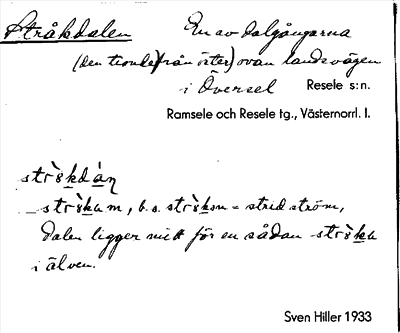 Stråkdalen
En av dalgångarna
(den tionde från öster) ovan landsvägen
i Översel Resele s:n.
Ramsele och Resele tg., Västernorrl. l.
strò̀kdàn
strò̀ka m, b.s. strò̀kən = strid ström,
dalen ligger mitt för en sådan strò̀ka
i älven.
Sven Hiller 1933